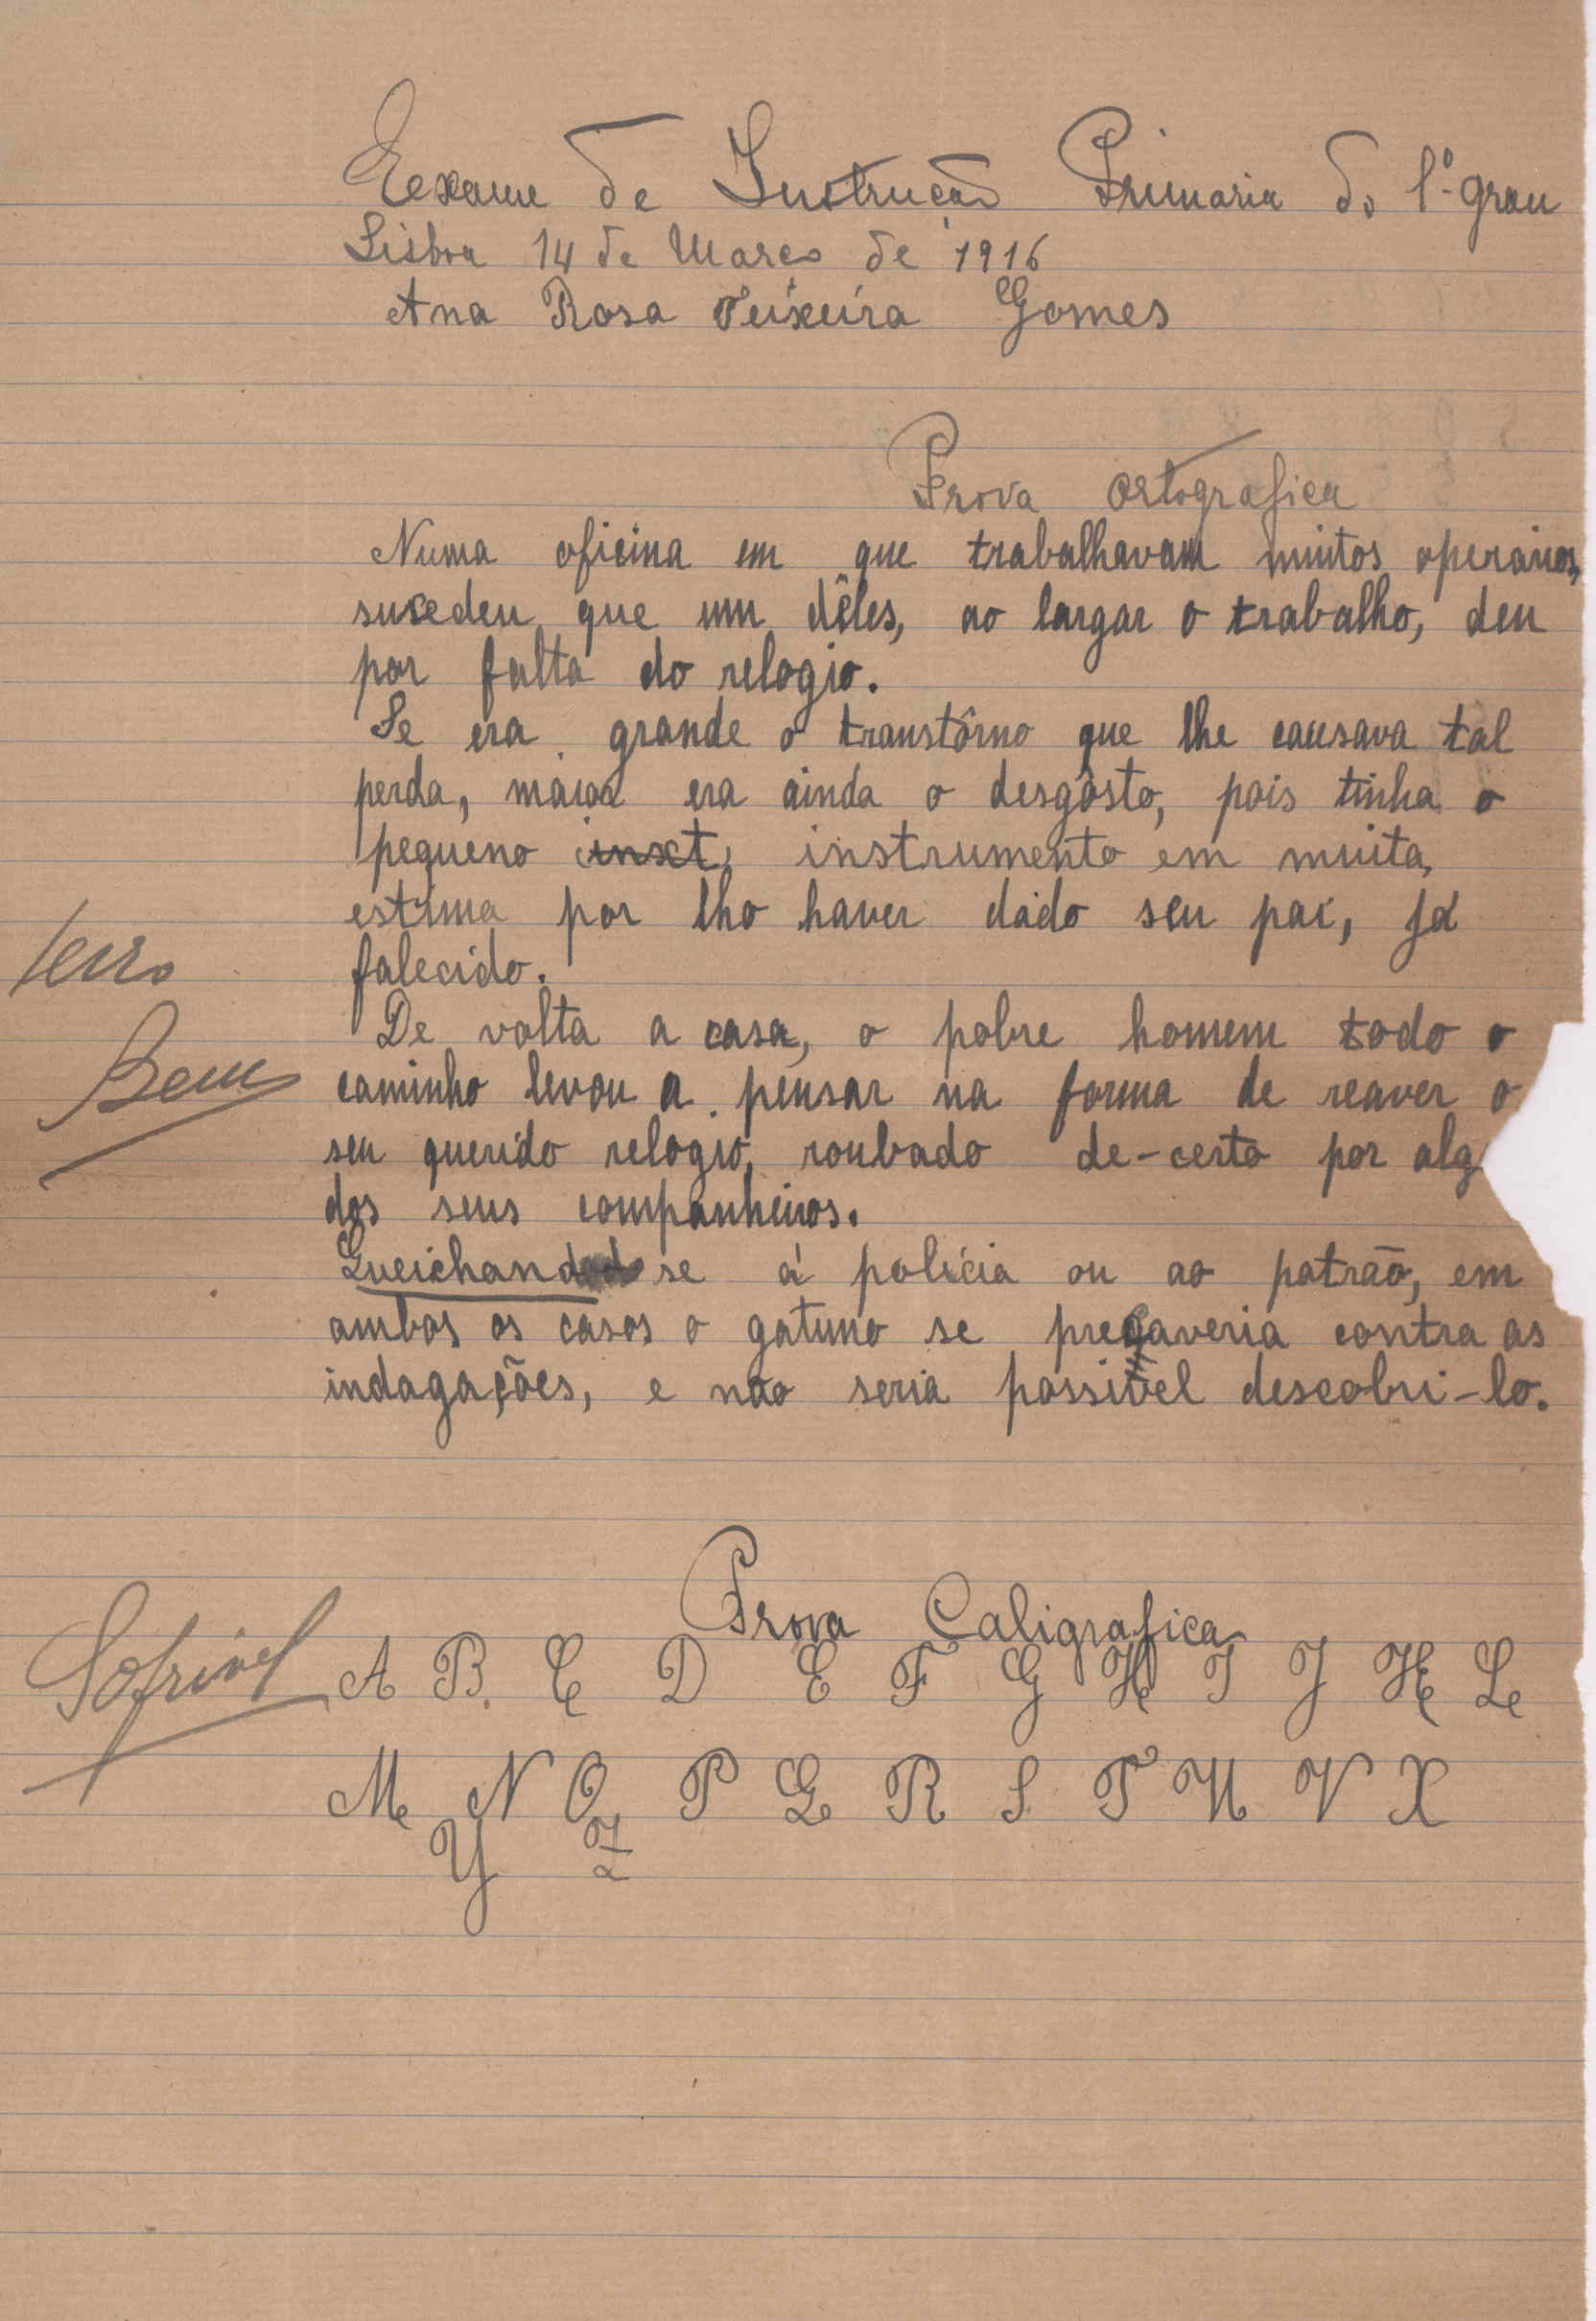 Eexame de Instrução Primaria do 1º grau
Lisboa 14 de Março de 1916
Ana Rosa Teixeira Gomes
Prova ortografica
Numa oficina em que trabalhavam muitos operarios,
sucedeu que um dêles, ao largar o trabalho, deu
por falta do relogio.
Se era grande o transtôrno que lhe causava tal
perda, maior era ainda o desgôsto, pois tinha o
pequeno inst, instrumento em muita
estima por lho haver dado seu pai, já
falecido.
1 erro
De volta a casa, o pobre homem todo o
Bem
caminho levou a pensar na forma de reaver o
seu querido relogio, roubado de-certo por alg
dos seus companheiros.
Queichando se á polícia ou ao patrão, em
ambos os casos o gatuno se precaveria contra as
indagações, e não seria possivel descobri-lo.
Prova Caligrafica
Sofrivel
A B C D E F G H I J K L
M N O P Q R S T U V X
Y Z